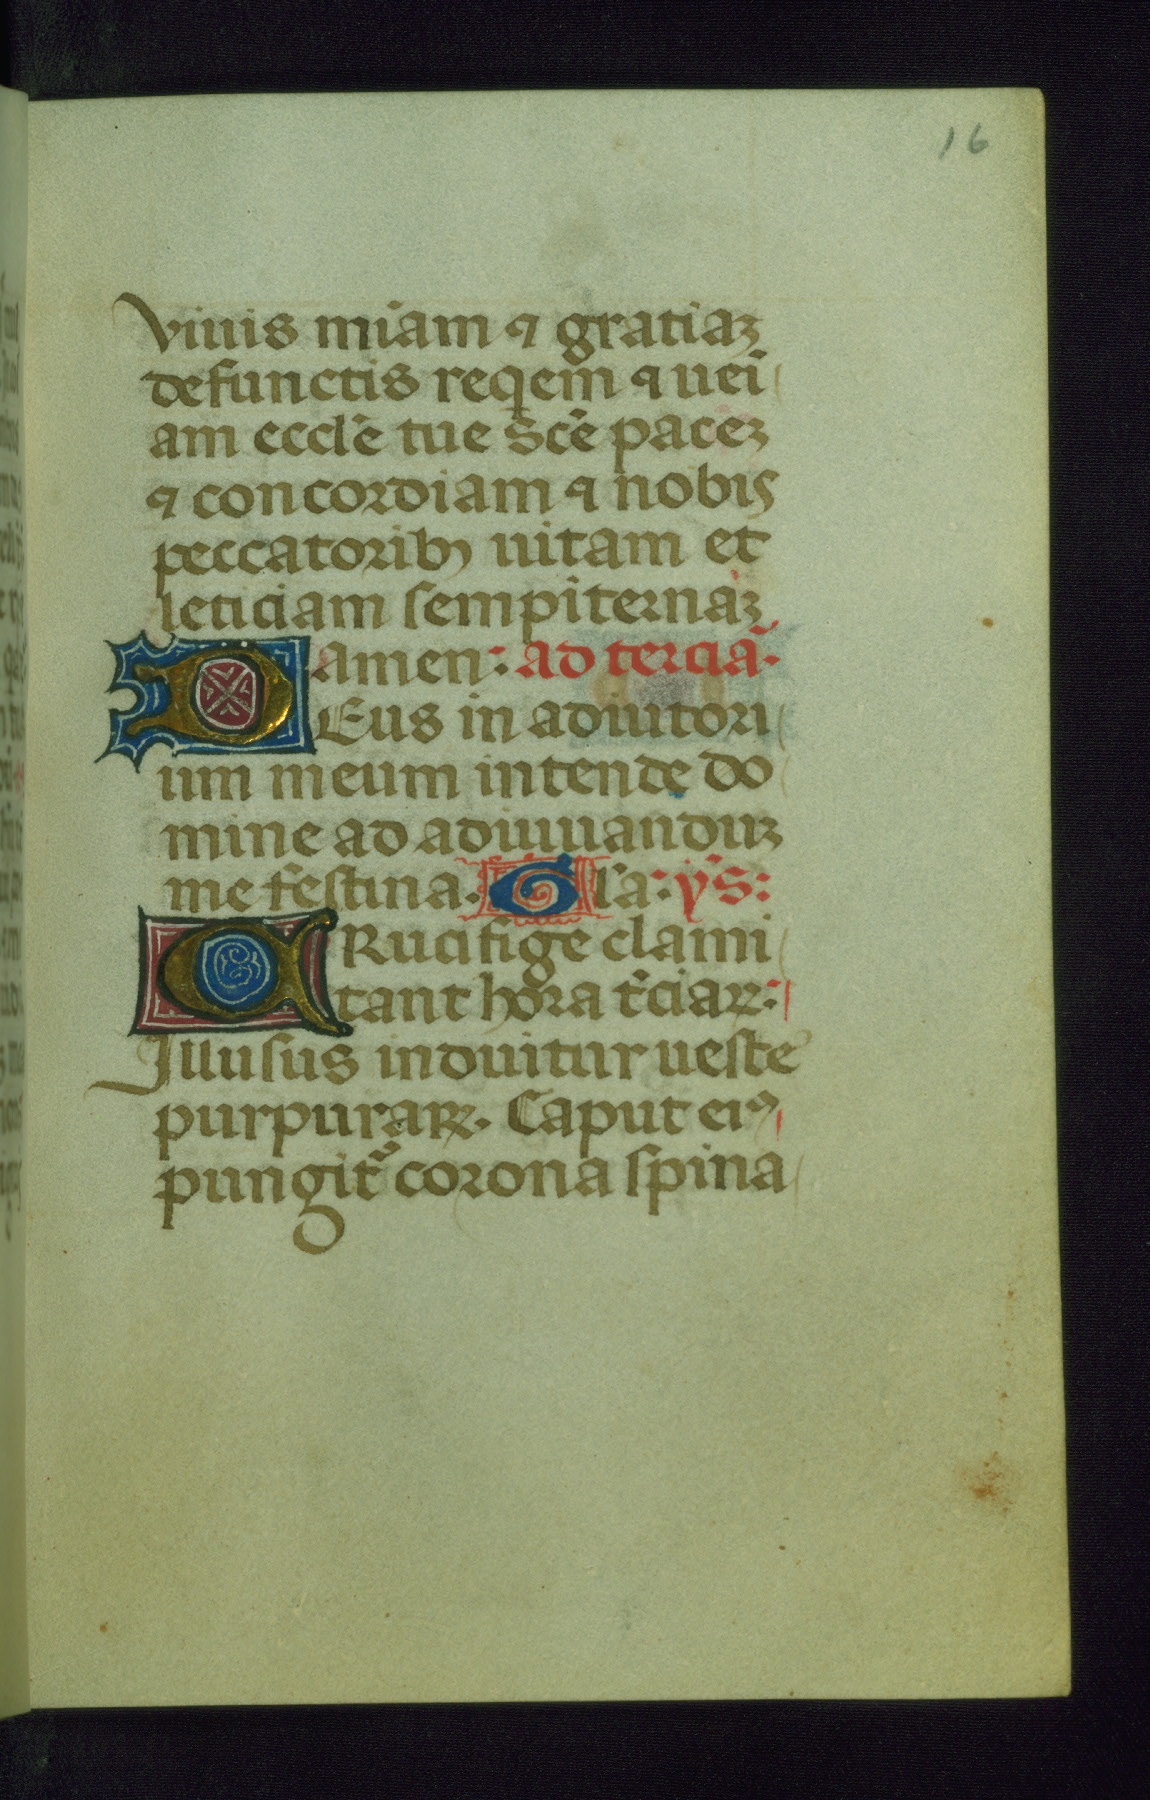 16
viuis mīam ⁊ gratiaꝫ
defunctis reqem̄ ⁊ uei̅
am eccl̄e tue sc̄e paceꝫ
⁊ concordiam ⁊ nobis
peccatoribꝫ uitam et
leticiam sempiternaꝫ
amen: ad terciā.
DEus in adiutori
um meum intende do
mine ad adiuuanduꝫ
me festina. Gl̄a: ẏs:
CRucifige clami
tant hora t̄ciaꝝ:
Illusus induitur ueste
purpuraꝝ. Caput eiꝰ
pungit᷑ corona spina